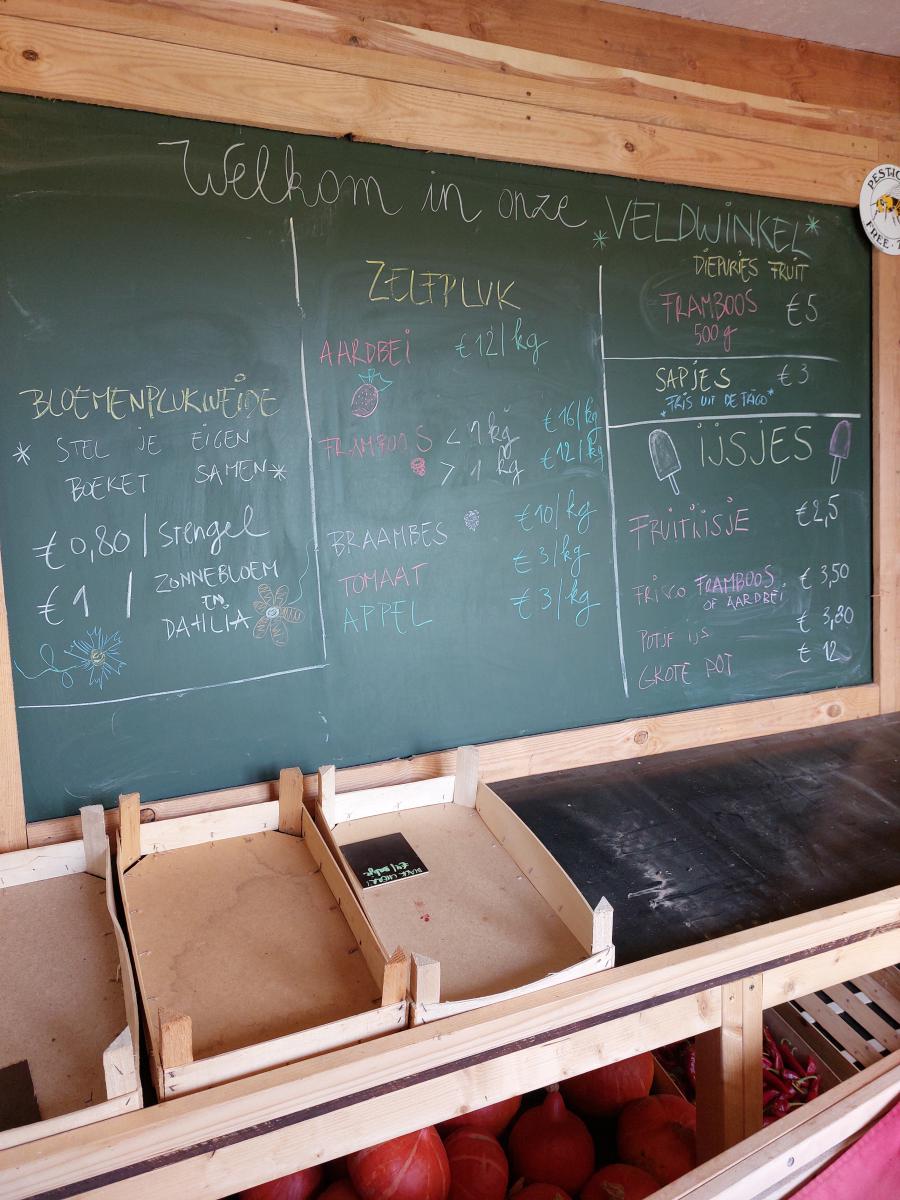 Welkom in onze
*VELDWINKEL*
BLOEMENPLUKWEIDE
* STEL JE EIGEN
BOEKET SAMEN *
€0,80 / stengel
€1 / ZONNEBLOEM
EN
DAHLIA
ZELFPLUK
AARDBEI €12/kg
FRAMBOOS < 1 kg €16/kg
> 1 kg €12/kg
BRAAMBES €10/kg
TOMAAT €3/kg
APPEL €3/kg
DIEPVRIES FRUIT
FRAMBOOS €5
500 g
SAPJES €3
*FRIS UIT DE FRIGO*
IJSJES
FRUITIJSJE €2,5
FRISCO FRAMBOOS € 3,50
OF AARDBEI
POTJE IJS € 3,80
GROTE POT € 12
PESTIC
FREE